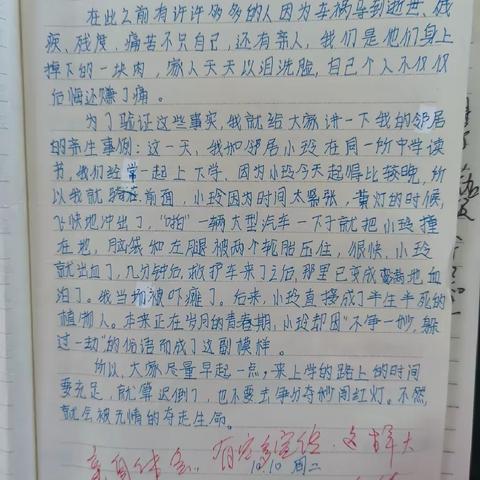 在此之前有许许多多的人因为车祸导到逝世、残
疾、残度,痛苦不只自己,还有亲人,我们是他们身上
掉下的一块肉,家人天天以泪洗脸,自己个人不仅仅
后悔还赚了痛。
为了验证这些事实,我就给大家讲一下我的邻居
的亲生事例:这一天,我和邻居小玲在同一所中学读
书,我们经常一起上下学,因为小玲今天起得比较晚,所
以我就骑在前面,小玲因为时间太紧张,黄灯的时候,
飞快地冲出了,"啪"一辆大型汽车一下子就把小玲撞
在地,脑袋和左腿被两个轮胎压住,很快,小玲
就出血了,几分钟后,救护车来了之后,那里已变成满地血
泊了。我当场被吓瘫了。后来,小玲直接成了半生半死的
植物人。本来正在岁月的青春期,小玲却因"不争一秒,躲
过一劫"的俗语而成了这副模样。
所以,大家尽量早起一点,来上学的路上的时间
要充足,就算迟到了,也不要去争分夺秒闯红灯。不然,
就会被无情的夺走生命。
10.10 周二